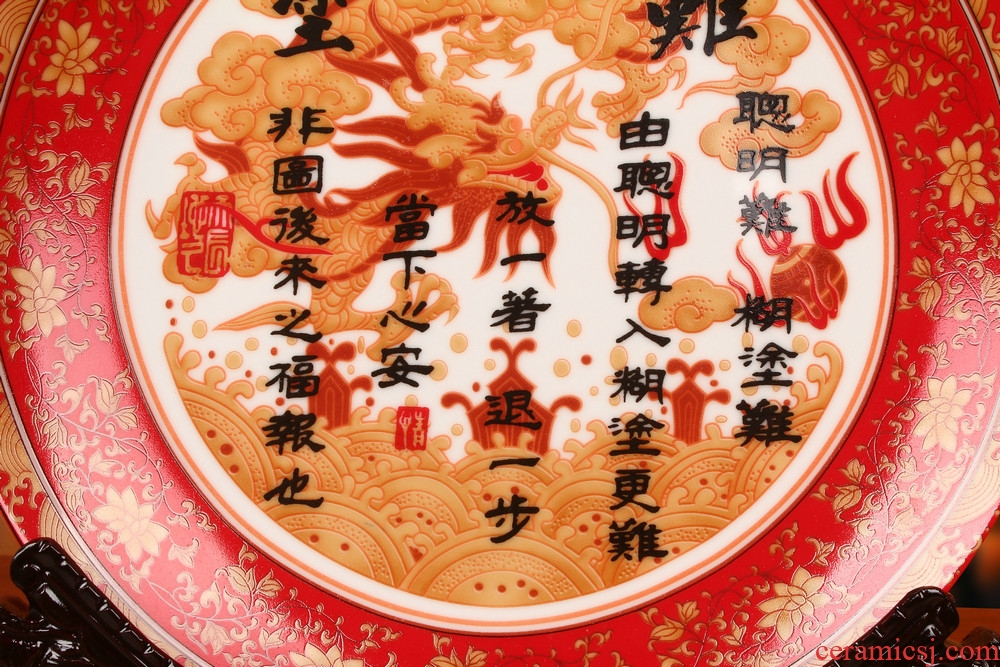 難
聰明難 糊塗難
由聰明轉入糊塗更難
放一著 退一步
當下心安
非圖後來之福報也
ceramicsj.com